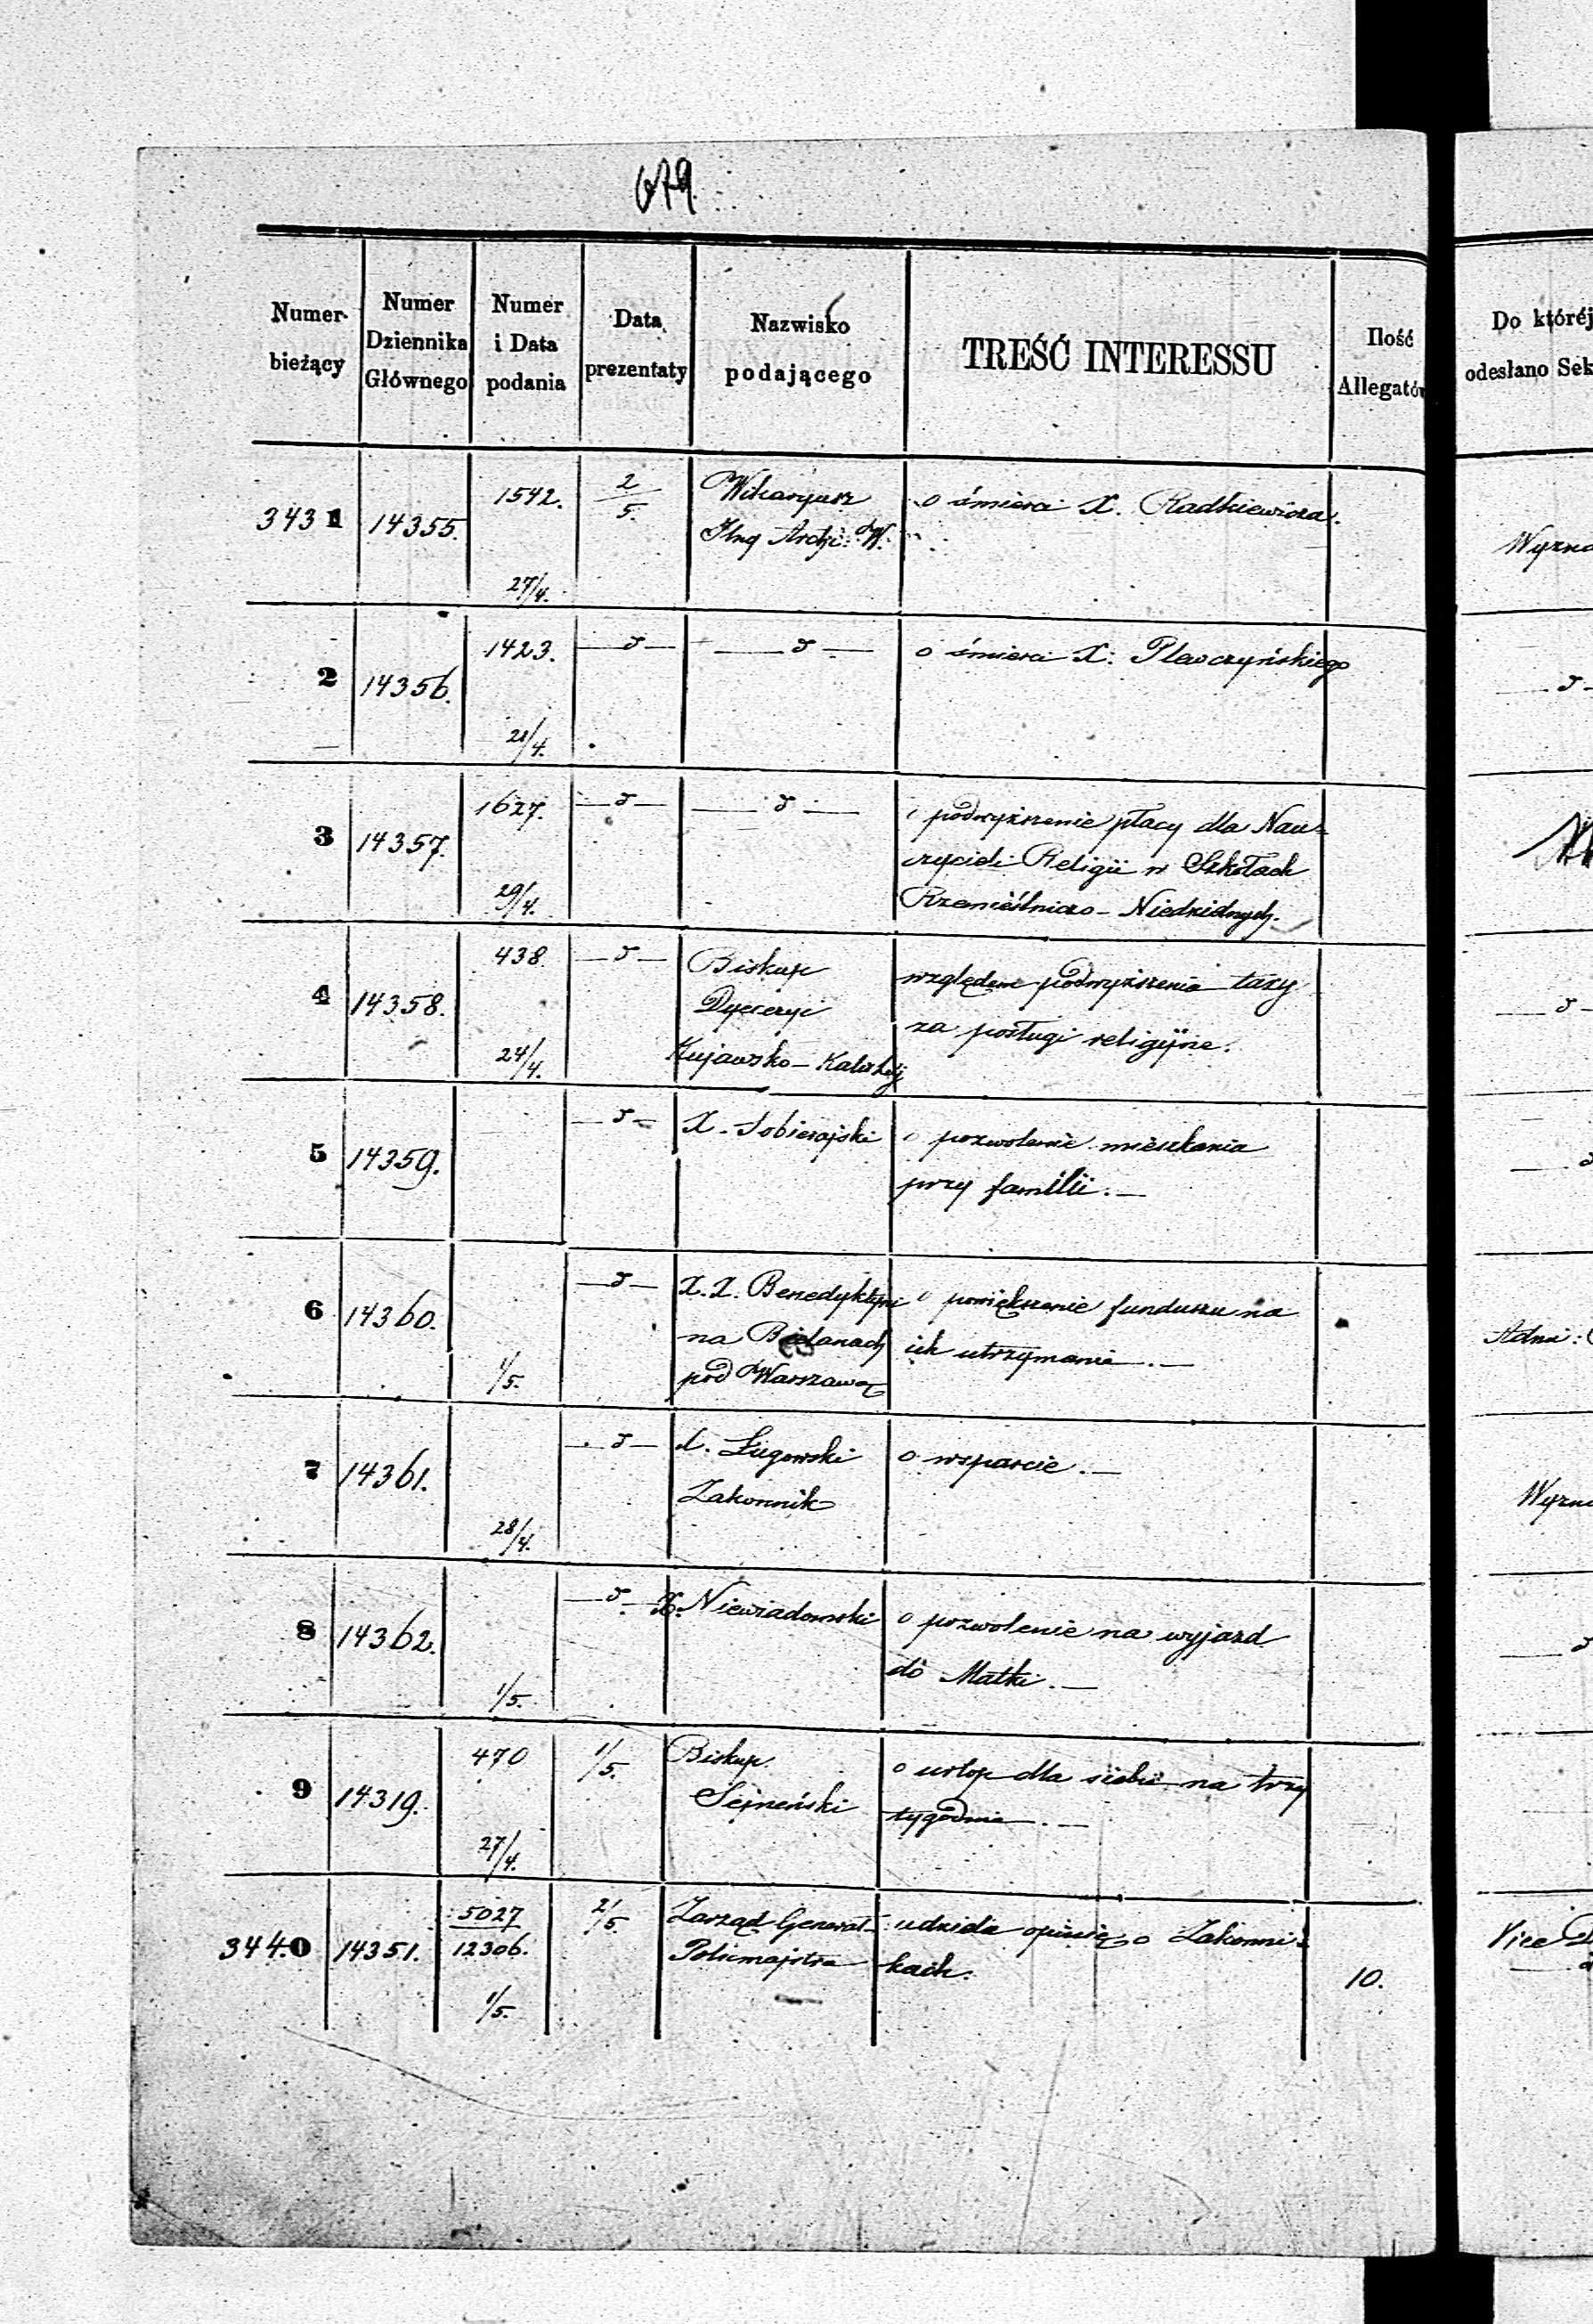 679.
Numer bieżący
Numer Dziennika Głównego
Numer i Data podania
Data prezentaty
Nazwisko podającego
TREŚĆ INTERESSU
Ilość Allegatów
Do któréj
odesłano Sek
3431 14355. 1542. 27/4. 2/5.
Wikaryusz
Archi: W.
o śmierci X. Radkiewicza.
2 14356. 1423. 21/4. — d — — d —
o śmierci X.
3 14357. 1627. 29/4. — d — — d —
o podwyższenie płacy dla Nau-
czycieli Religii w Szkołach
Rzemieślniczo - Niedzielnych.
4 14358. 438. 24/4. — d —
Biskup
Dyecezyi
Kujawsko - Kaliskiej
względem podwyższenia taxy
za posługi religijne.
— d —
5 14359. — d —
X. Sobierajski
o pozwolenie mieszkania
przy familii. —
6 14360. 1/5. — d —
X.X. Benedyktyni
na Bielanach
pod Warszawą
o powiększenie funduszu na
ich utrzymanie. —
7 14361. 28/4. — d —
Ługowski
Zakonnik
o wsparcie. —
8 14362. 1/5. — d —
X. Niewiadomski
o pozwolenie na wyjazd
do Matki. —
9 14319. 470 27/4. 1/5.
Biskup
Sejneński
o urlop dla siebie na trzy
tygodnie. —
3440 14351. 5027/12306. 1/5. 2/5
Zarząd Generał-
Policmajstra
udziela opinię o Zakonni-
kach.
10.
Vice